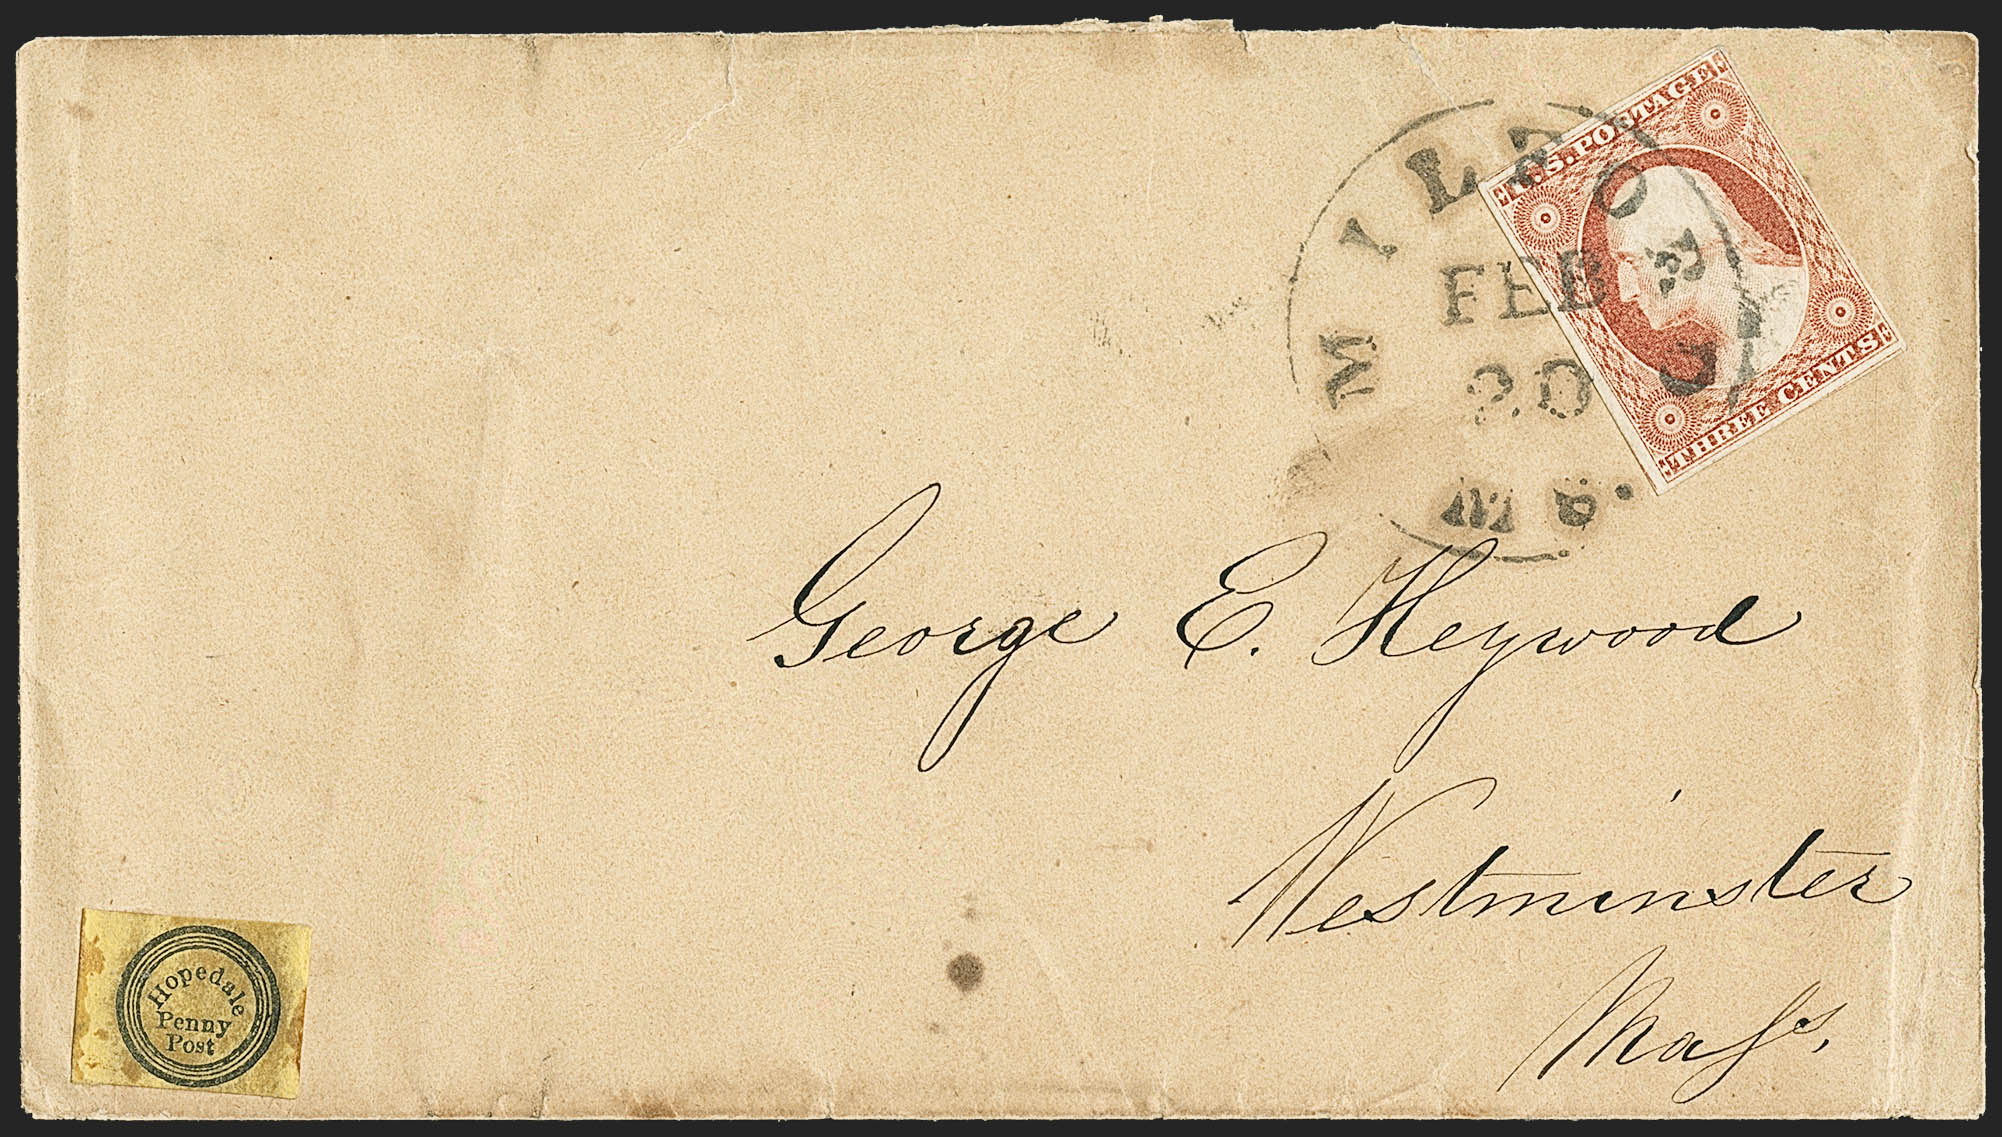 U.S. POSTAGE
THREE CENTS
MILFORD
FEB
20
Ms.
George E. Heywood
Westminster
Maſs.
Hopedale
Penny
Post